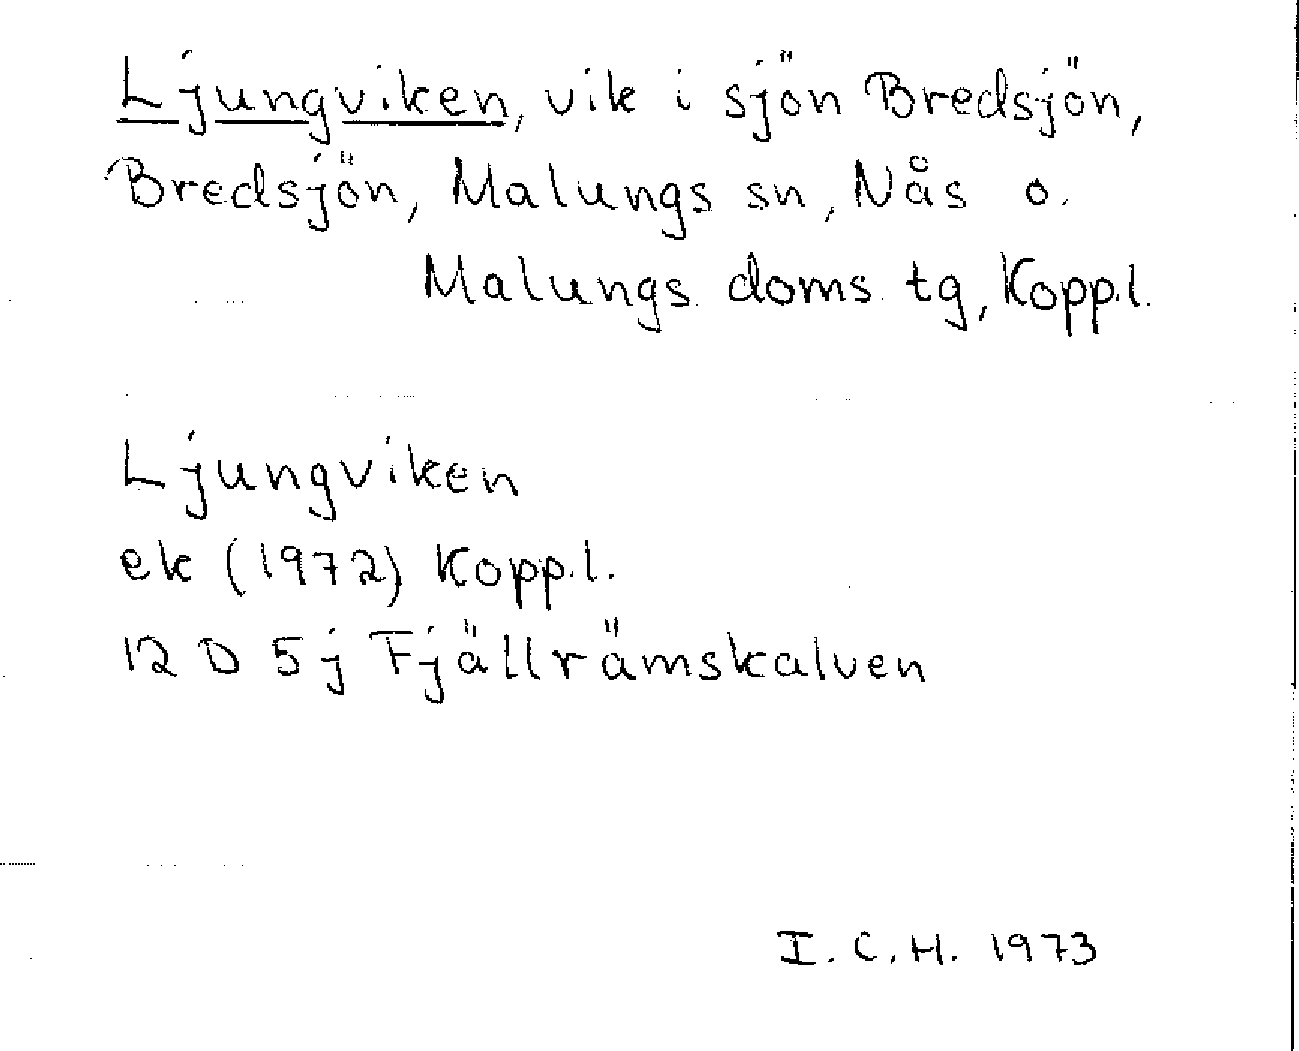 Ljungviken, vik i sjön Bredsjön,
Bredsjön, Malungs sn, Nås o.
Malungs doms. tg, Kopp.l.
Ljungviken
ek (1972) Kopp.l.
12 D 5j Fjällrämskalven
I.C.H. 1973